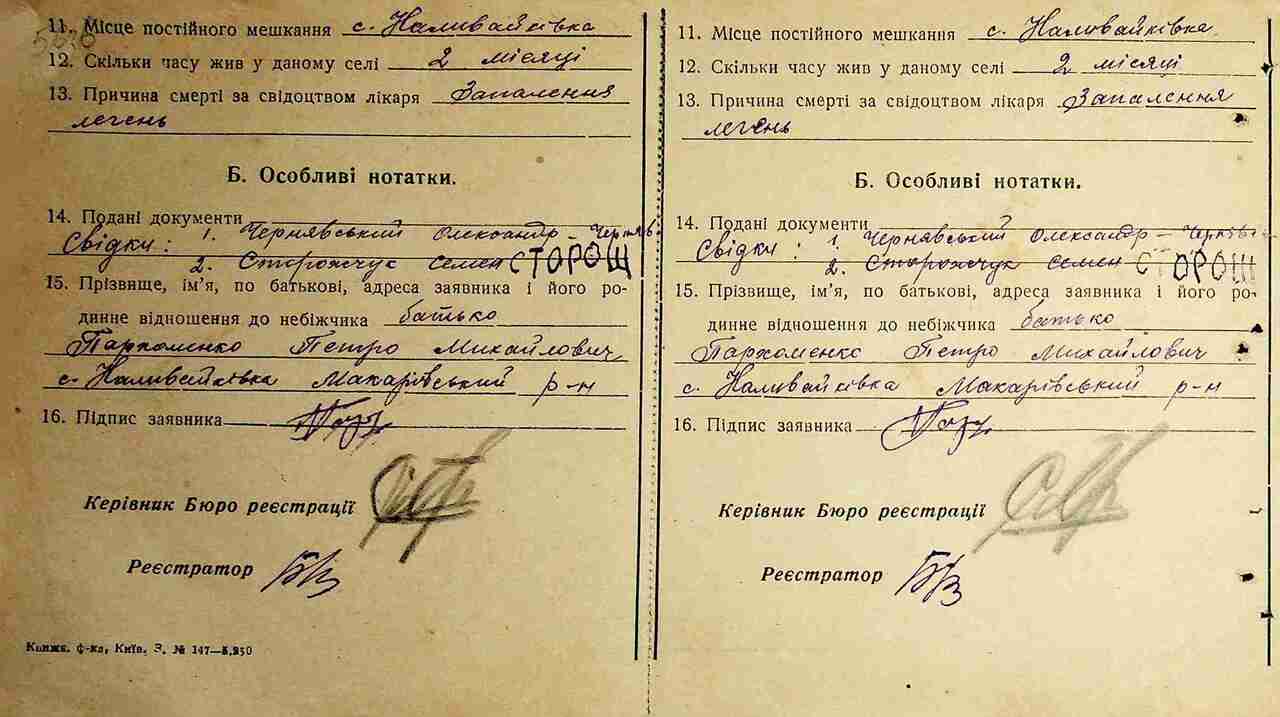 11. Місце постійного мешкання с. Наливайківка
12. Скільки часу жив у даному селі 2 місяці
13. Причина смерті за свідоцтвом лікаря Запалення
легень
Б. Особливі нотатки.
14. Подані документи
Свідки: 1. Чернявський Олександр – Черняв
2. Сторожчук Семен СТОРОЩ
15. Прізвище, ім'я, по батькові, адреса заявника і його ро-
динне відношення до небіжчика батько
Пархоменко Петро Михайлович
с. Наливайківка Макарівський р-н
16. Підпис заявника
Керівник Бюро реєстрації
Реєстратор
Книжк. ф-ка, Київ. З. № 147—5,250
11. Місце постійного мешкання с. Наливайківка
12. Скільки часу жив у даному селі 2 місяці
13. Причина смерті за свідоцтвом лікаря Запалення
легень
Б. Особливі нотатки.
14. Подані документи
Свідки: 1. Чернявський Олександр – Черняв
2. Сторожчук Семен СТОРОЩ
15. Прізвище, ім'я, по батькові, адреса заявника і його ро-
динне відношення до небіжчика батько
Пархоменко Петро Михайлович
с. Наливайківка Макарівський р-н
16. Підпис заявника
Керівник Бюро реєстрації
Реєстратор